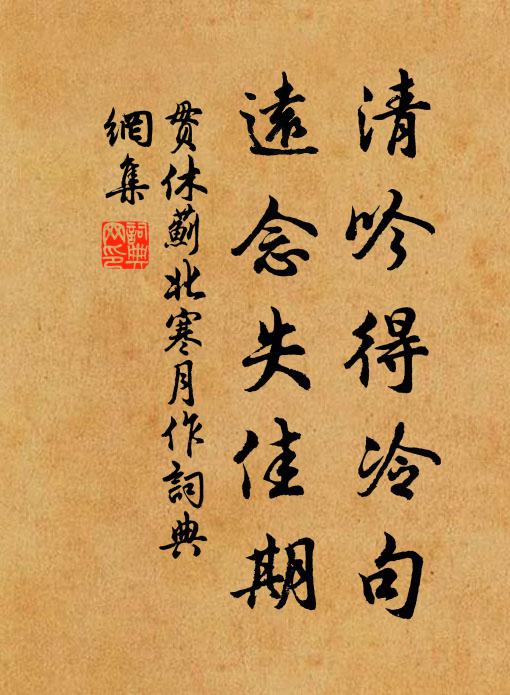 清吟得冷句
遠念失佳期
贯休薊北寒月作詞典
網集
詞典網印